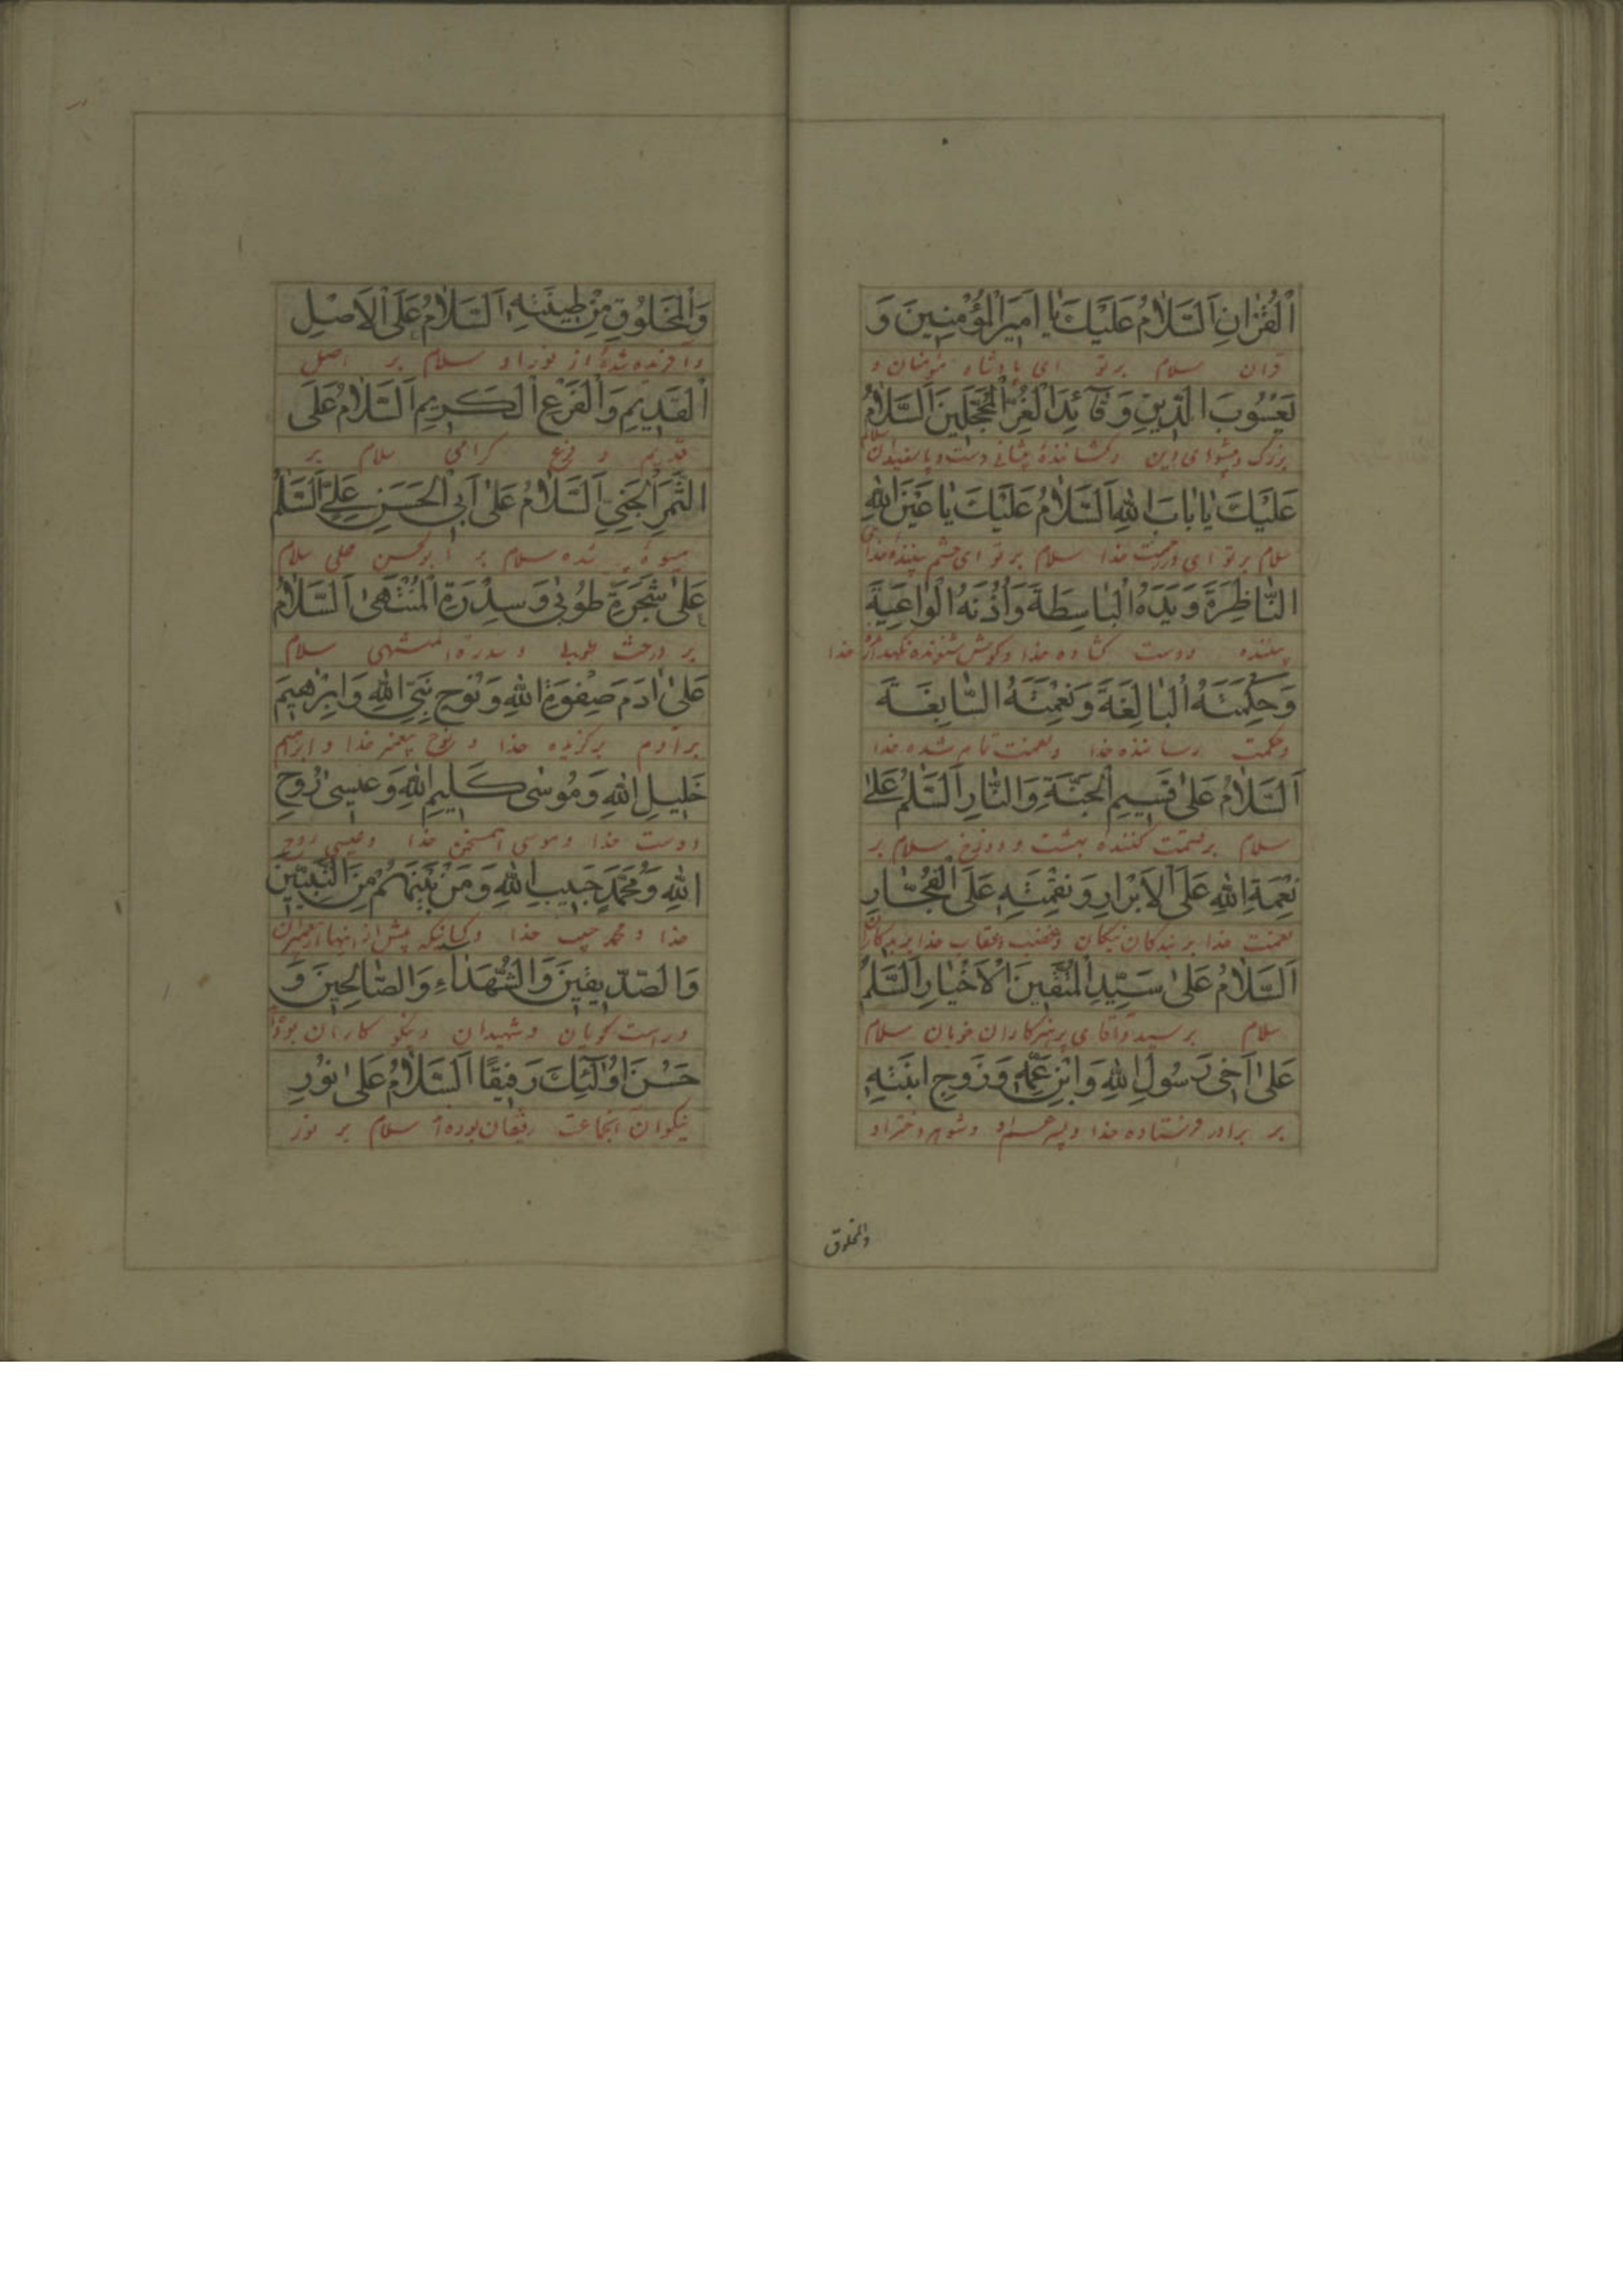 اَلْقُرْانِ اَلسَّلٰامُ عَلَيْكَ يٰا اَمِيرَ الْمُؤْمِنِينَ وَ
قران سلام برتو ای پادشاه مؤمنان و
يَعْسُوبَ الدِّينِ وَ قٰآئِدَ الْغُرِّ الْمُحَجَّلِينَ اَلسَّلٰامُ
بزرک و پیشوای دین و کشانندهٔ پیشانی و دست و پا سفیدان سلام
عَلَيْكَ يٰا بٰابَ اللهِ اَلسَّلٰامُ عَلَيْكَ يٰا عَيْنَ اللهِ
سلام برتو ای در خدا سلام برتو ای چشم بیننده خدا
النّٰاظِرَةَ وَ يَدَهُ الْبٰاسِطَةَ وَ اُذُنَهُ الْوٰاعِيَةَ
بیننده ودست کشاده خدا وکوش شنونده خدا
وَ حِكْمَتَهُ الْبٰالِغَةَ وَ نِعْمَتَهُ السّٰابِغَةَ
وحکمت رساننده خدا ونعمت تمام شده خدا
اَلسَّلٰامُ عَلىٰ قَسِيمِ الْجَنَّةِ وَ النّٰارِ اَلسَّلٰمُ عَلىٰ
سلام برقسمت کننده بهشت و دوزخ سلام بر
نِعْمَةِ اللهِ عَلَى الْاَبْرٰارِ وَ نِقْمَتِهِ عَلَى الْفُجّٰارِ
نعمت خدا بر بندکان نیکان وغضب وعقاب خدا بر بدکاران
اَلسَّلٰامُ عَلىٰ سَيِّدِ الْمُتَّقِينَ الْاَخْيٰارِ اَلسَّلٰمُ
سلام برسید وآقای پرهیزکاران خوبان سلام
عَلىٰ اَخِى رَسُولِ اللهِ وَ ابْنِ عَمِّهِ وَ زَوْجِ ابْنَتِهِ
بر برادر فرستاده خدا وپسر عم او وشوهر دختر او
والمخلوق
وَ الْمَخْلُوقِ مِنْ طِينَتِهِ اَلسَّلٰامُ عَلَى الْاَصْلِ
وآفریده شدهٔ از نور او سلام بر اصل
الْقَدِيمِ وَ الْفَرْعِ الْكَرِيمِ اَلسَّلٰامُ عَلَى
قدیم و فرع کرامی سلام بر
الثَّمَرِ الْجَنِيِّ اَلسَّلٰامُ عَلىٰ اَبِى الْحَسَنِ عَلِيٍّ اَلسَّلٰمُ
میوهٔ شده سلام بر ابوالحسن علی سلام
عَلىٰ شَجَرَةِ طُوبىٰ وَ سِدْرَةِ الْمُنْتَهىٰ اَلسَّلٰامُ
بر درخت طوبی و سدرة المنتهی سلام
عَلىٰ اٰدَمَ صِفْوَةِ اللهِ وَ نُوحٍ نَبِيِّ اللهِ وَ اِبْرٰهِيمَ
بر آدم برکزیده خدا و نوح پیغمبر خدا و ابراهیم
خَلِيلِ اللهِ وَ مُوسىٰ كَلِيمِ اللهِ وَ عِيسىٰ رُوحِ
دوست خدا وموسی همسخن خدا وعیسی روح
اللهِ وَ مُحَمَّدٍ حَبِيبِ اللهِ وَ مَنْ بَيْنَهُمْ مِنَ النَّبِيِّينَ
خدا و محمد حبیب خدا وکسانیکه پیش از اینها از پیغمبران
وَ الصِّدِّيقِينَ وَ الشُّهَدٰاءِ وَ الصّٰالِحِينَ وَ
وراست کویان وشهیدان ونیکو کاران بوده
حَسُنَ اُولٰئِكَ رَفِيقًا اَلسَّلٰامُ عَلىٰ نُورِ
نیکوان انجماعت رفیقان بوده سلام بر نور